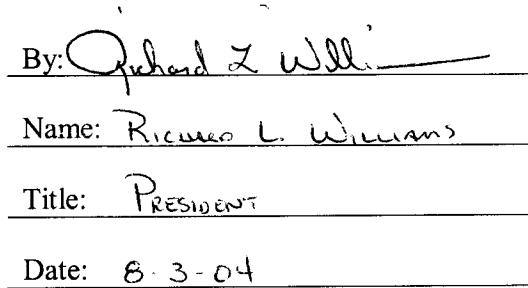 By: Richard L Willi
Name: Richard L. Williams
Title: President
Date: 8-3-04